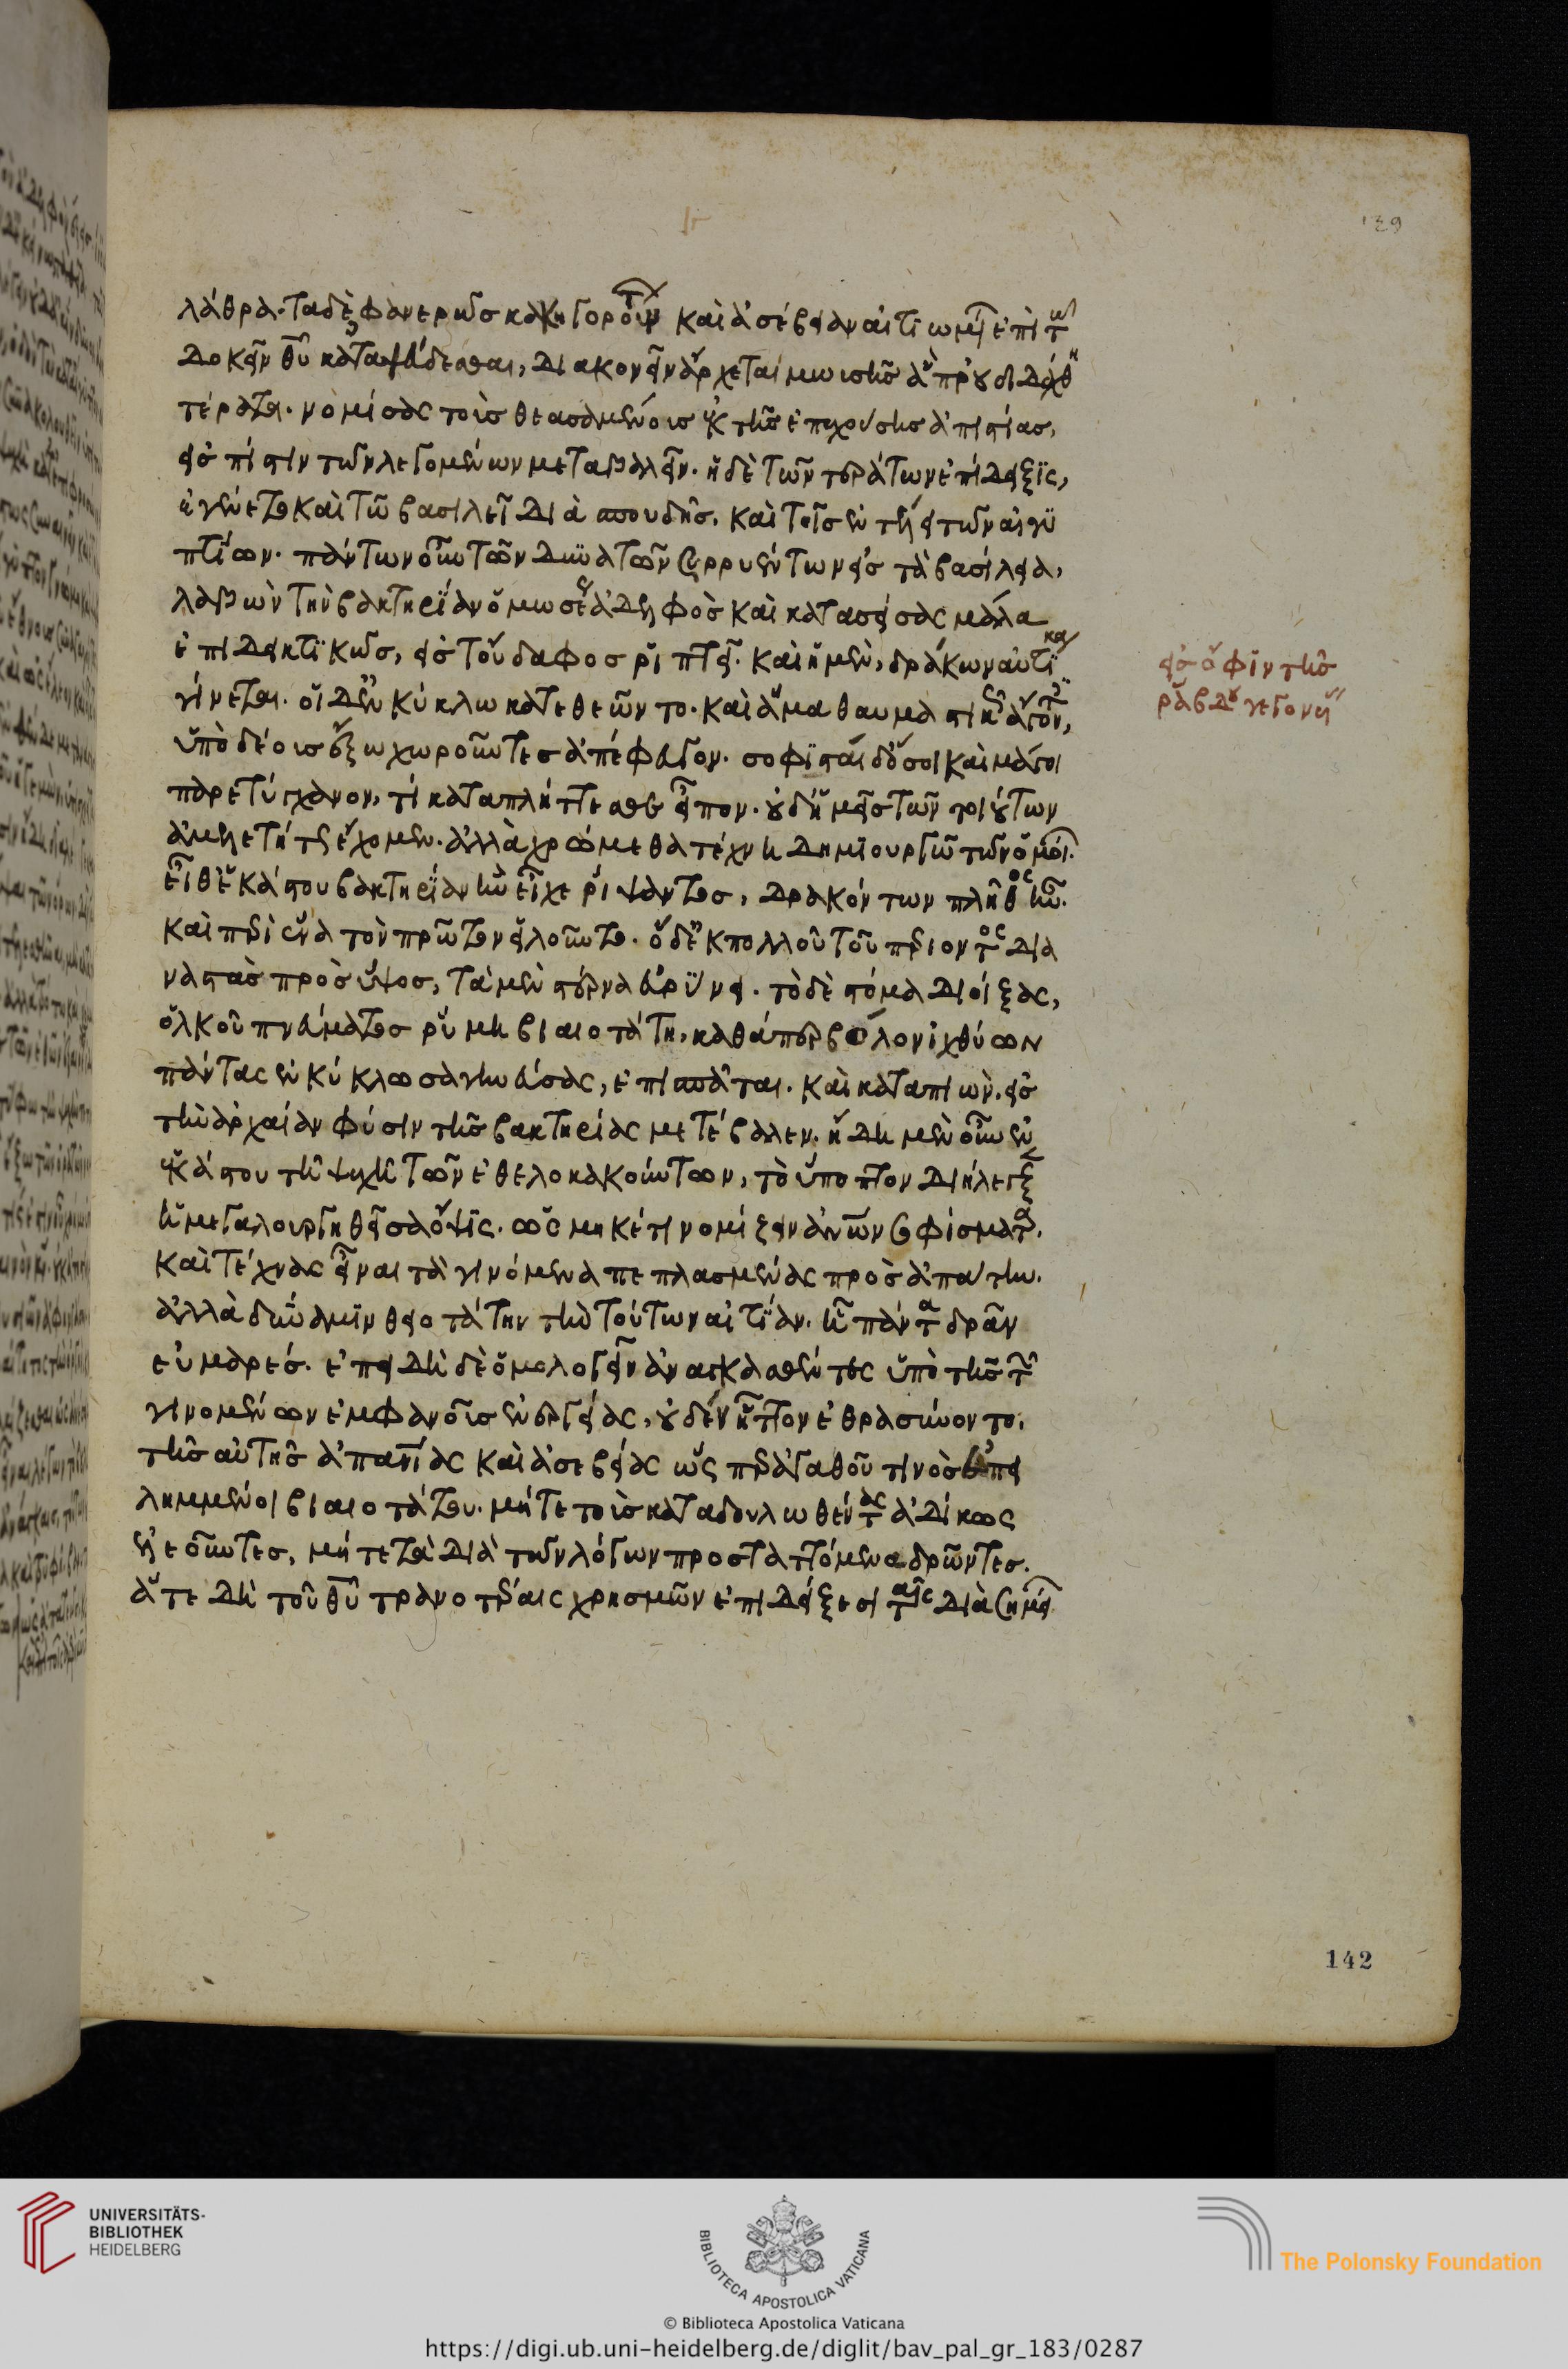 λάθρα· τὰ δὲ φανερῶς κακηγορούντων καὶ ἀσέβειαν αἰτιωμένων ἐπὶ τῷ
δοκεῖν θῦ καταψεύδεσθαι, διακονεῖν ἄρχεται μωυσῆς ἃ προὐδιδάχθη
τέρατα· νομίσας τοὺς θεασαμένους ἐκ τῆς ἐπεχούσης ἀπιστίας,
εἰς πίστιν τῶν λεγομένων μεταβαλεῖν. ἡ δὲ τῶν τεράτων ἐπίδειξις,
ἐγένετο καὶ τῶ βασιλεῖ διὰ σπουδῆς. καὶ τοῖς ἐν τέλει τῶν αἰγυ
πτίων· πάντων οὖν τῶν δυνατῶν συρρυέντων εἰς τὰ βασίλεια,
λαβὼν τὴν βακτηρίαν ὁ μωσέως ἀδελφὸς καὶ κατασείσας μάλα
ἐπιδεικτικῶς, εἰς τοὔδαφος ῥίπτει. καὶ ἡ μὲν, δράκων αὐτίκα
γίνεται. οἱ δ' ἐν κύκλω κατεθεῶντο. καὶ ἅμα θαυμαστικῶς
ὑπὸ δέους ἔξω χωροῦντες ἀπέφευγον. σοφισταὶ δ' ὅσοι καὶ μάγοι
παρετύγχανον, τί καταπλήττεσθε εἶπον. οὐδ' ἡμεῖς τῶν τοιούτων
ἀμελετήτως ἔχομεν. ἀλλὰ χρώμεθα τέχνη δημιουργῶ τῶν ὁμοίων.
εἶθ' ἑκάστου βακτηρίαν ἣν εἶχε ῥίψαντος, δρακόντων πλῆθος ἦν.
καὶ περὶ ἕνα τὸν πρῶτον εἱλοῦντο. ὁ δ' ἐκ πολλοῦ τοῦ περιόντος δια
ναστὰς πρὸς ὕψος, τὰ μὲν στέρνα εὐρύνει. τὸ δὲ στόμα διοίξας,
ὁλκοῦ πνεύματος ῥύμη βιαιοτάτη, καθάπερ βόλον ἰχθύων
πάντας ἐν κύκλω σαγηνεύσας, ἐπισπᾶται. καὶ καταπιὼν, εἰς
τὴν ἀρχαίαν φύσιν τῆς βακτηρίας μετέβαλεν. ἤδη μὲν οὖν ἐν
ἑκάστου τῆ ψυχῆ τῶν ἐθελοκακούντων, τὸ ὕποπτον διήλεγξεν
ἡ μεγαλουργηθεῖσα ὄψις. ὡς μηκέτι νομίζειν ἀνῶν σοφίσματα.
καὶ τέχνας εἶναι τὰ γινόμενα πεπλασμένας πρὸς ἀπάτην.
ἀλλὰ δύναμιν θειοτάτην τὴν τούτων αἰτίαν. ἧ πάντα δρᾶν
εὐμαρές. ἐπειδὴ δὲ ὁμολογεῖν ἀναγκασθέντες ὑπὸ τῆς τῶν
γινομένων ἐμφανοῦς ἐνεργείας, οὐδὲν ἧττον ἐθρασύνοντο.
τῆς αὐτῆς ἀπανίας καὶ ἀσεβείας ὥς περ ἀγαθοῦ τινὸς ἐπει
λημμένοι βιαιοτάτου. μήτε τοὺς καταδουλωθέντας ἀδίκως
ἐλεοῦντες, μήτε τὰ διὰ τῶν λόγων προσταττόμενα δρῶντες.
ἅτε δὴ τοῦ θῦ τρανοτέραις χρησμῶν ἐπιδείξεσι ταῖς διὰ σημείων
εἰς ὄφιν τῆς
ῥάβδου γεγονυί
139
142
UNIVERSITÄTS-
BIBLIOTHEK
HEIDELBERG
BIBLIOTECA APOSTOLICA VATICANA
The Polonsky Foundation
© Biblioteca Apostolica Vaticana
https://digi.ub.uni-heidelberg.de/diglit/bav_pal_gr_183/0287